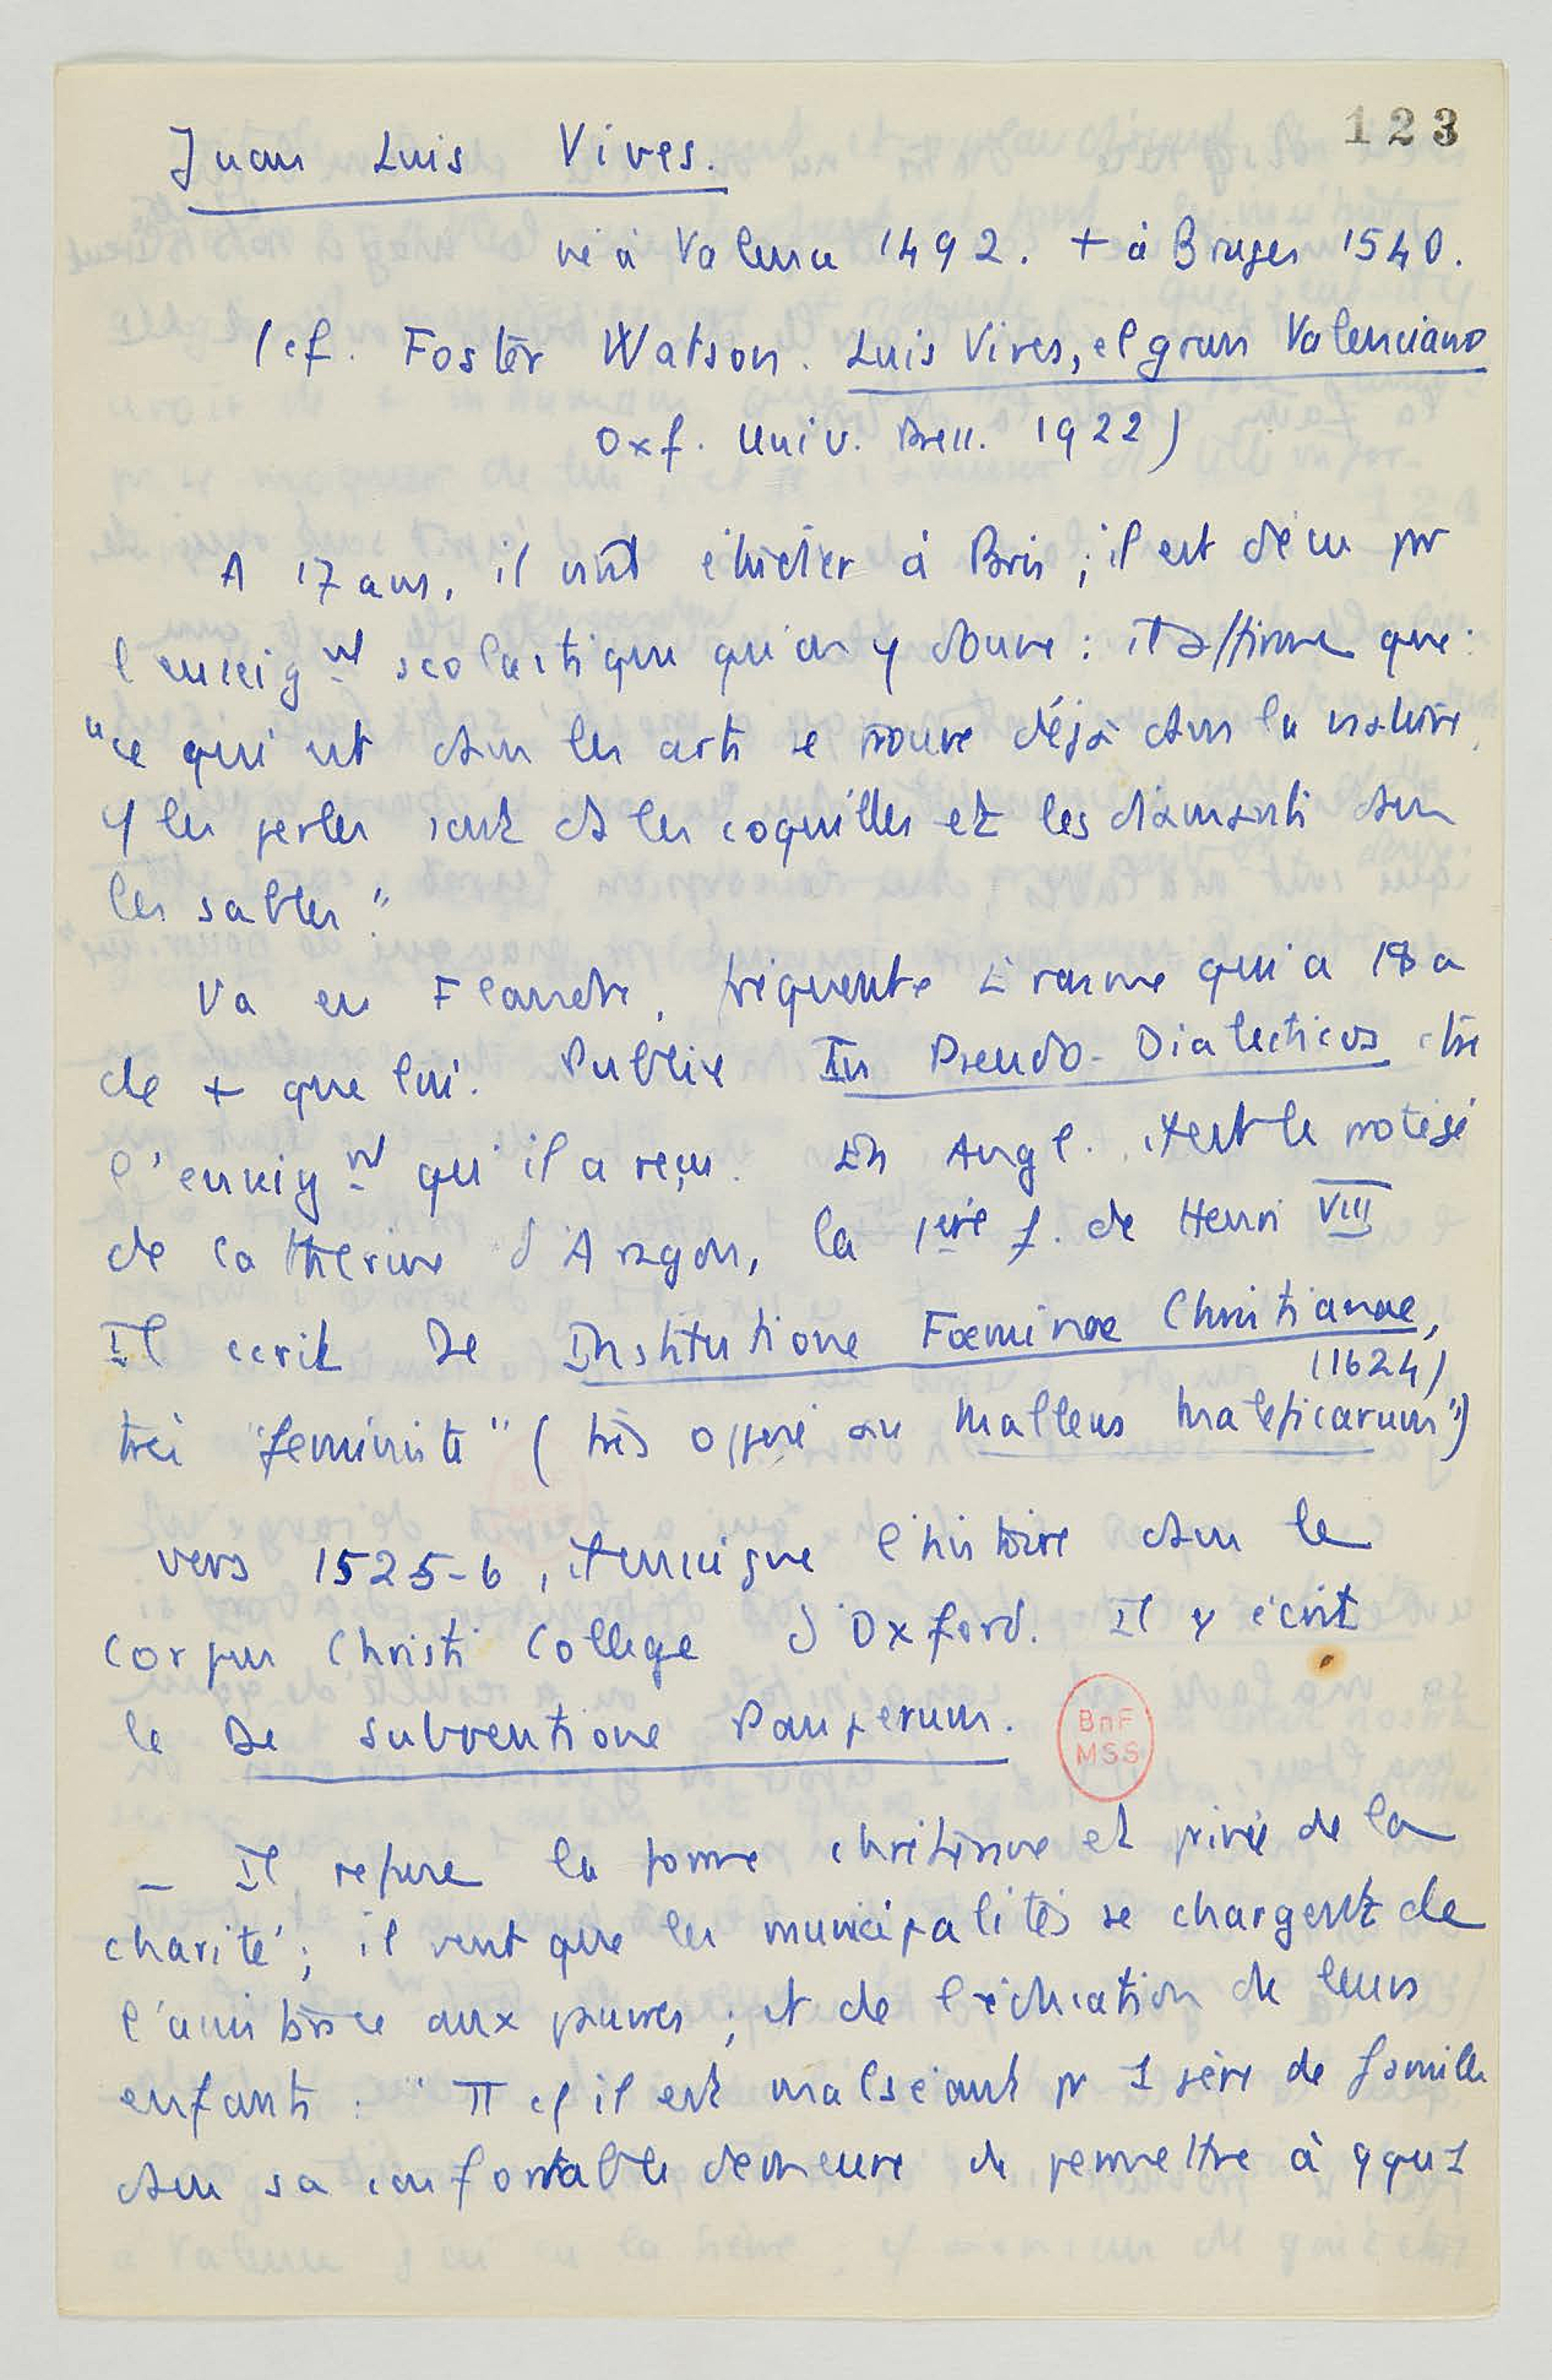 123
Juan Luis Vives.
né à Valence 1492. + à Bruges 1540.
(cf. Foster Watson. Luis Vives, el gran Valenciano
Oxf. Univ. Press. 1922)
A 17 ans, il vint étudier à Paris ; il est déçu pr
l'enseignt scolastique qu'on y donne : il affirme que :
"ce qui est dans les arts se trouve déjà dans la nature,
les perles sont ds les coquilles et les diamants dans
les sables".
Va en Flandre, fréquente Erasme qui a 18 a
de + que lui. Publie In Pseudo-Dialecticos ctre
l'enseignt qu'il a reçu. En Angl. il est le protégé
de Catherine d'Aragon, la 1ère f. de Henri VIII
Il ecrit De Institutione Foeminae Christianae,
(1624)
très "feministe" (très opposé au Malleus Maleficarum")
vers 1525-6, il enseigne l'histoire dans le
Corpus Christi College d'Oxford. Il y écrit
le De subventione Pauperum.
BnF
MSS
_ Il refuse la forme chrétienne et privée de la
charité ; il veut que les municipalités se chargent de
l'assistance aux pauvres ; et de l'éducation de leurs
enfants : " il est malséant pr 1 père de famille
dans sa confortable demeure de permettre à qqu1